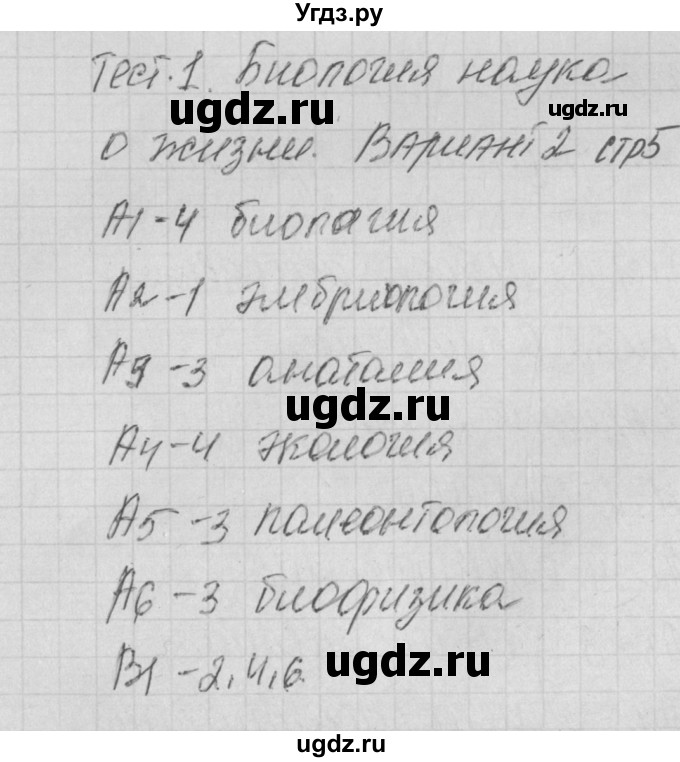 Угдз.ру
Тест.1. Биология наука
ugdz.ru
ugdz.ru
о жизни. Вариант 2 стр5
А1-4 биология
А2-1 эмбриология
А3-3 анатамия
ugdz.ru
А4-4 экология
А5-3 палеонтология
А6-3 биофизика
В1-2,4,6
ugdz.ru
ugdz.ru